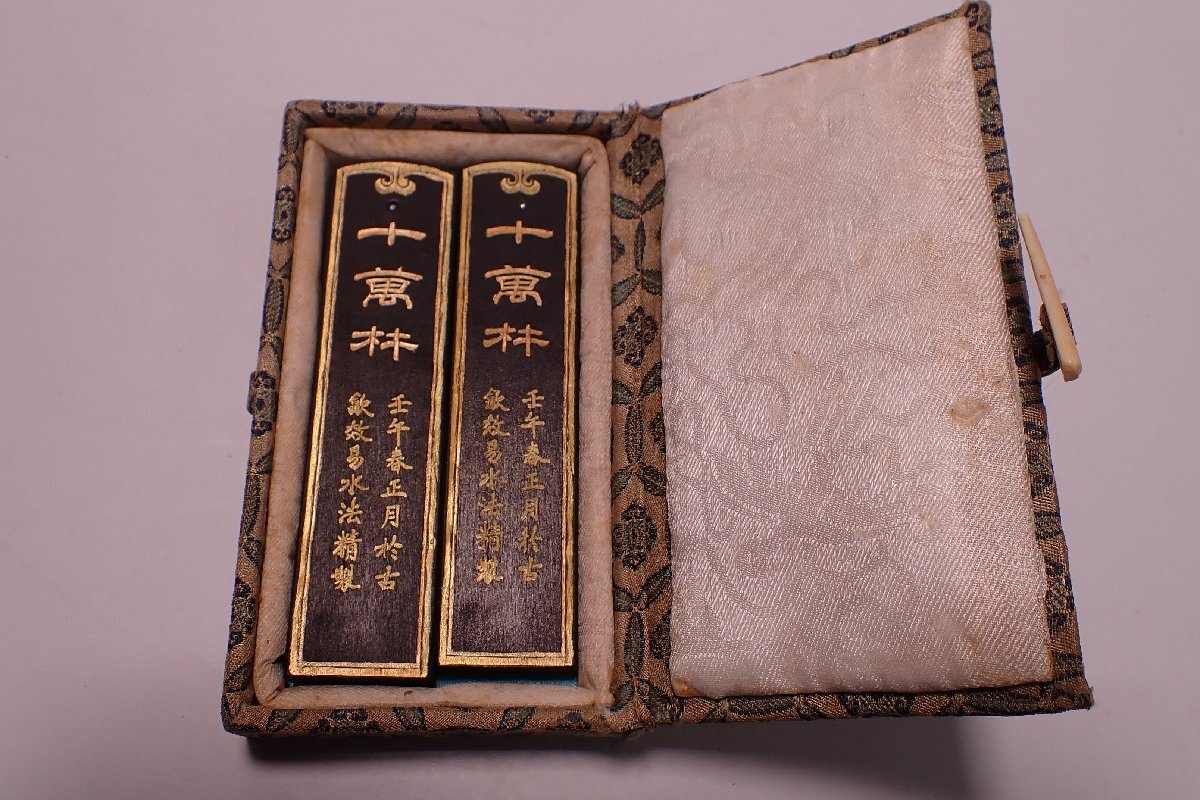 十萬杵
壬午春正月於古
歙效易水法精製
十萬杵
壬午春正月於古
歙效易水法精製